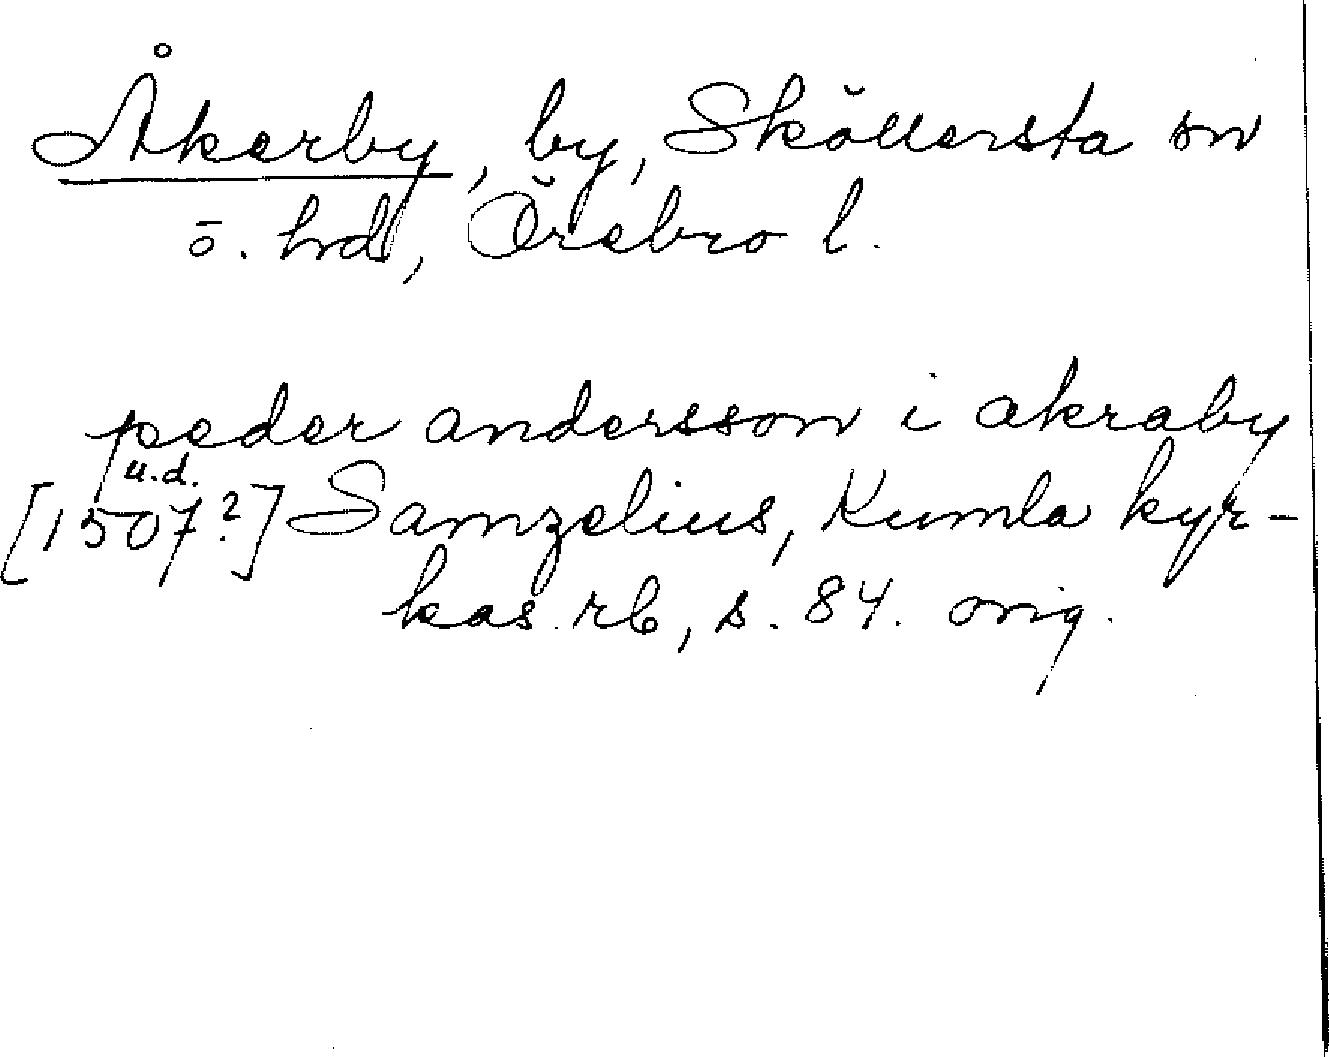 Åkerby, by, Sköllersta sn
ö. hrd, Örebro l.
peder andersson i akraby
u.d.
[1507?] Samzelius, Kumla kyr-
kas rb, s. 84. orig.